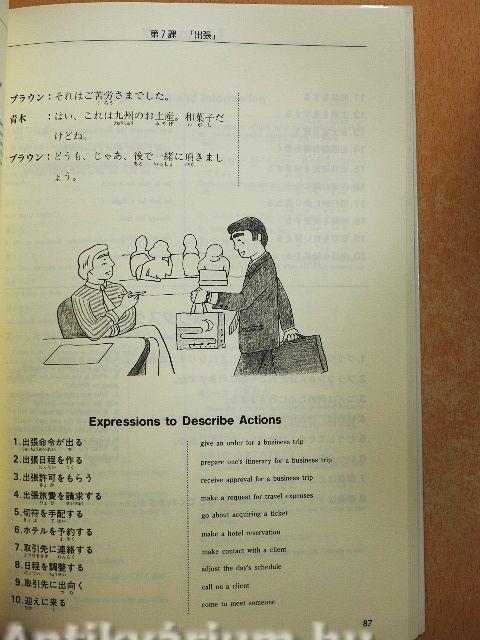 第7課 「出張」
ブラウン：それはご苦労さまでした。
くろう
青木　：はい、これは九州のお土産。和菓子だ
きゅうしゅう みやげ わがし
けどね。
ブラウン：どうも、じゃあ、後で一緒に頂きまし
あと いっしょ いただ
ょう。
Expressions to Describe Actions
1.出張命令が出る give an order for a business trip
2.出張日程を作る prepare one's itinerary for a business trip
3.出張許可をもらう receive approval for a business trip
4.出張旅費を請求する make a request for travel expenses
5.切符を手配する go about acquiring a ticket
6.ホテルを予約する make a hotel reservation
7.取引先に連絡する make contact with a client
8.日程を調整する adjust the day's schedule
9.取引先に出向く call on a client
10.迎えに来る come to meet someone
87
Antikvárium.hu